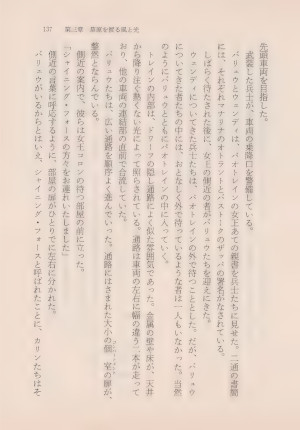 137　第三章　部屋を渡る風と光
先頭車両を目指した。
武装した兵士が、車両の乗降口を警備している。
バリュウとウェンディは、パオトレインの女王あての親書を兵士たちに見せた。二通の書簡
には、それぞれマナリナのオトラントとバストークのザッパの署名がなされている。
しばらく待たされた後に、女王の側近の者がバリュウたちを迎えにきた。
ウェンディについてきた兵士たちは、パオトレインの外で待つこととした。だが、バリュウ
についてきた者たちの中には、おとなしく外で待っているような者は一人もいなかった。当然
のようにバリュウとともにパオトレインの中に入っていく。
トレインの内部は、ドワーフの隠し通路によく似た雰囲気であった。金属の壁や床が、天井
から降り注ぐ熱くない光によって照らされている。通路は車両の左右に幅の違う二本が走って
おり、他の車両の連結部の直前で合流していた。
バリュウたちは、広い通路を順序よく進んでいった。通路にはさまれた大小の個室の扉が、
整然とならんでいる。
側近の案内で、彼らは女王コロンの待つ部屋の前に立った。
「シャイニング・フォースの方々をお連れいたしました」
側近の言葉に呼応するように、部屋の扉がひとりでに左右に分かれた。
バリュウがいるからとはいえ、シャイニング・フォースと呼ばれたことに、カリンたちはそ